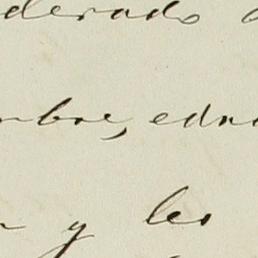 derado
mbre, edu
y los